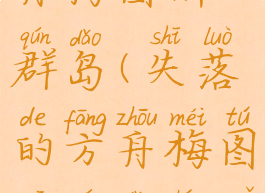 qún dǎo shī luò
群岛(失落
de fāng zhōu méi tú
的方舟梅图